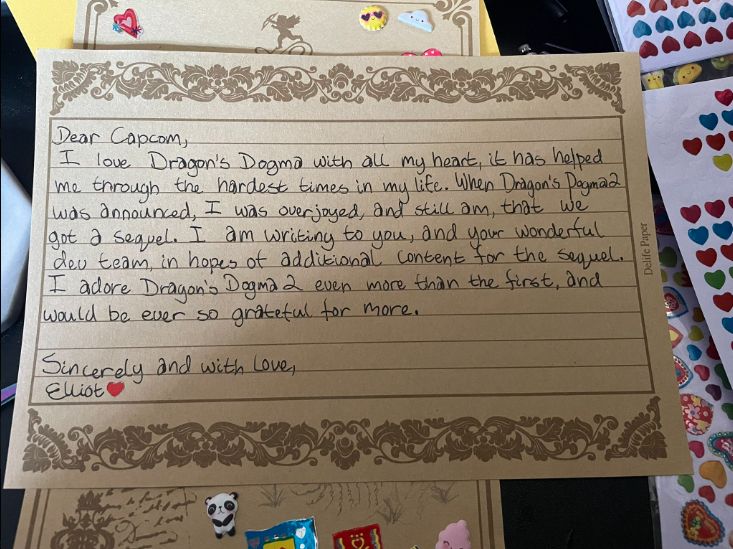 Dear Capcom,
I love Dragon's Dogma with all my heart, it has helped
me through the hardest times in my life. When Dragon's Dogma 2
was announced, I was overjoyed, and still am, that we
got a sequel. I am writing to you, and your wonderful
dev team, in hopes of additional content for the sequel.
I adore Dragon's Dogma 2 even more than the first, and
would be ever so grateful for more.
Sincerely and with Love,
Elliot❤
Delife Paper